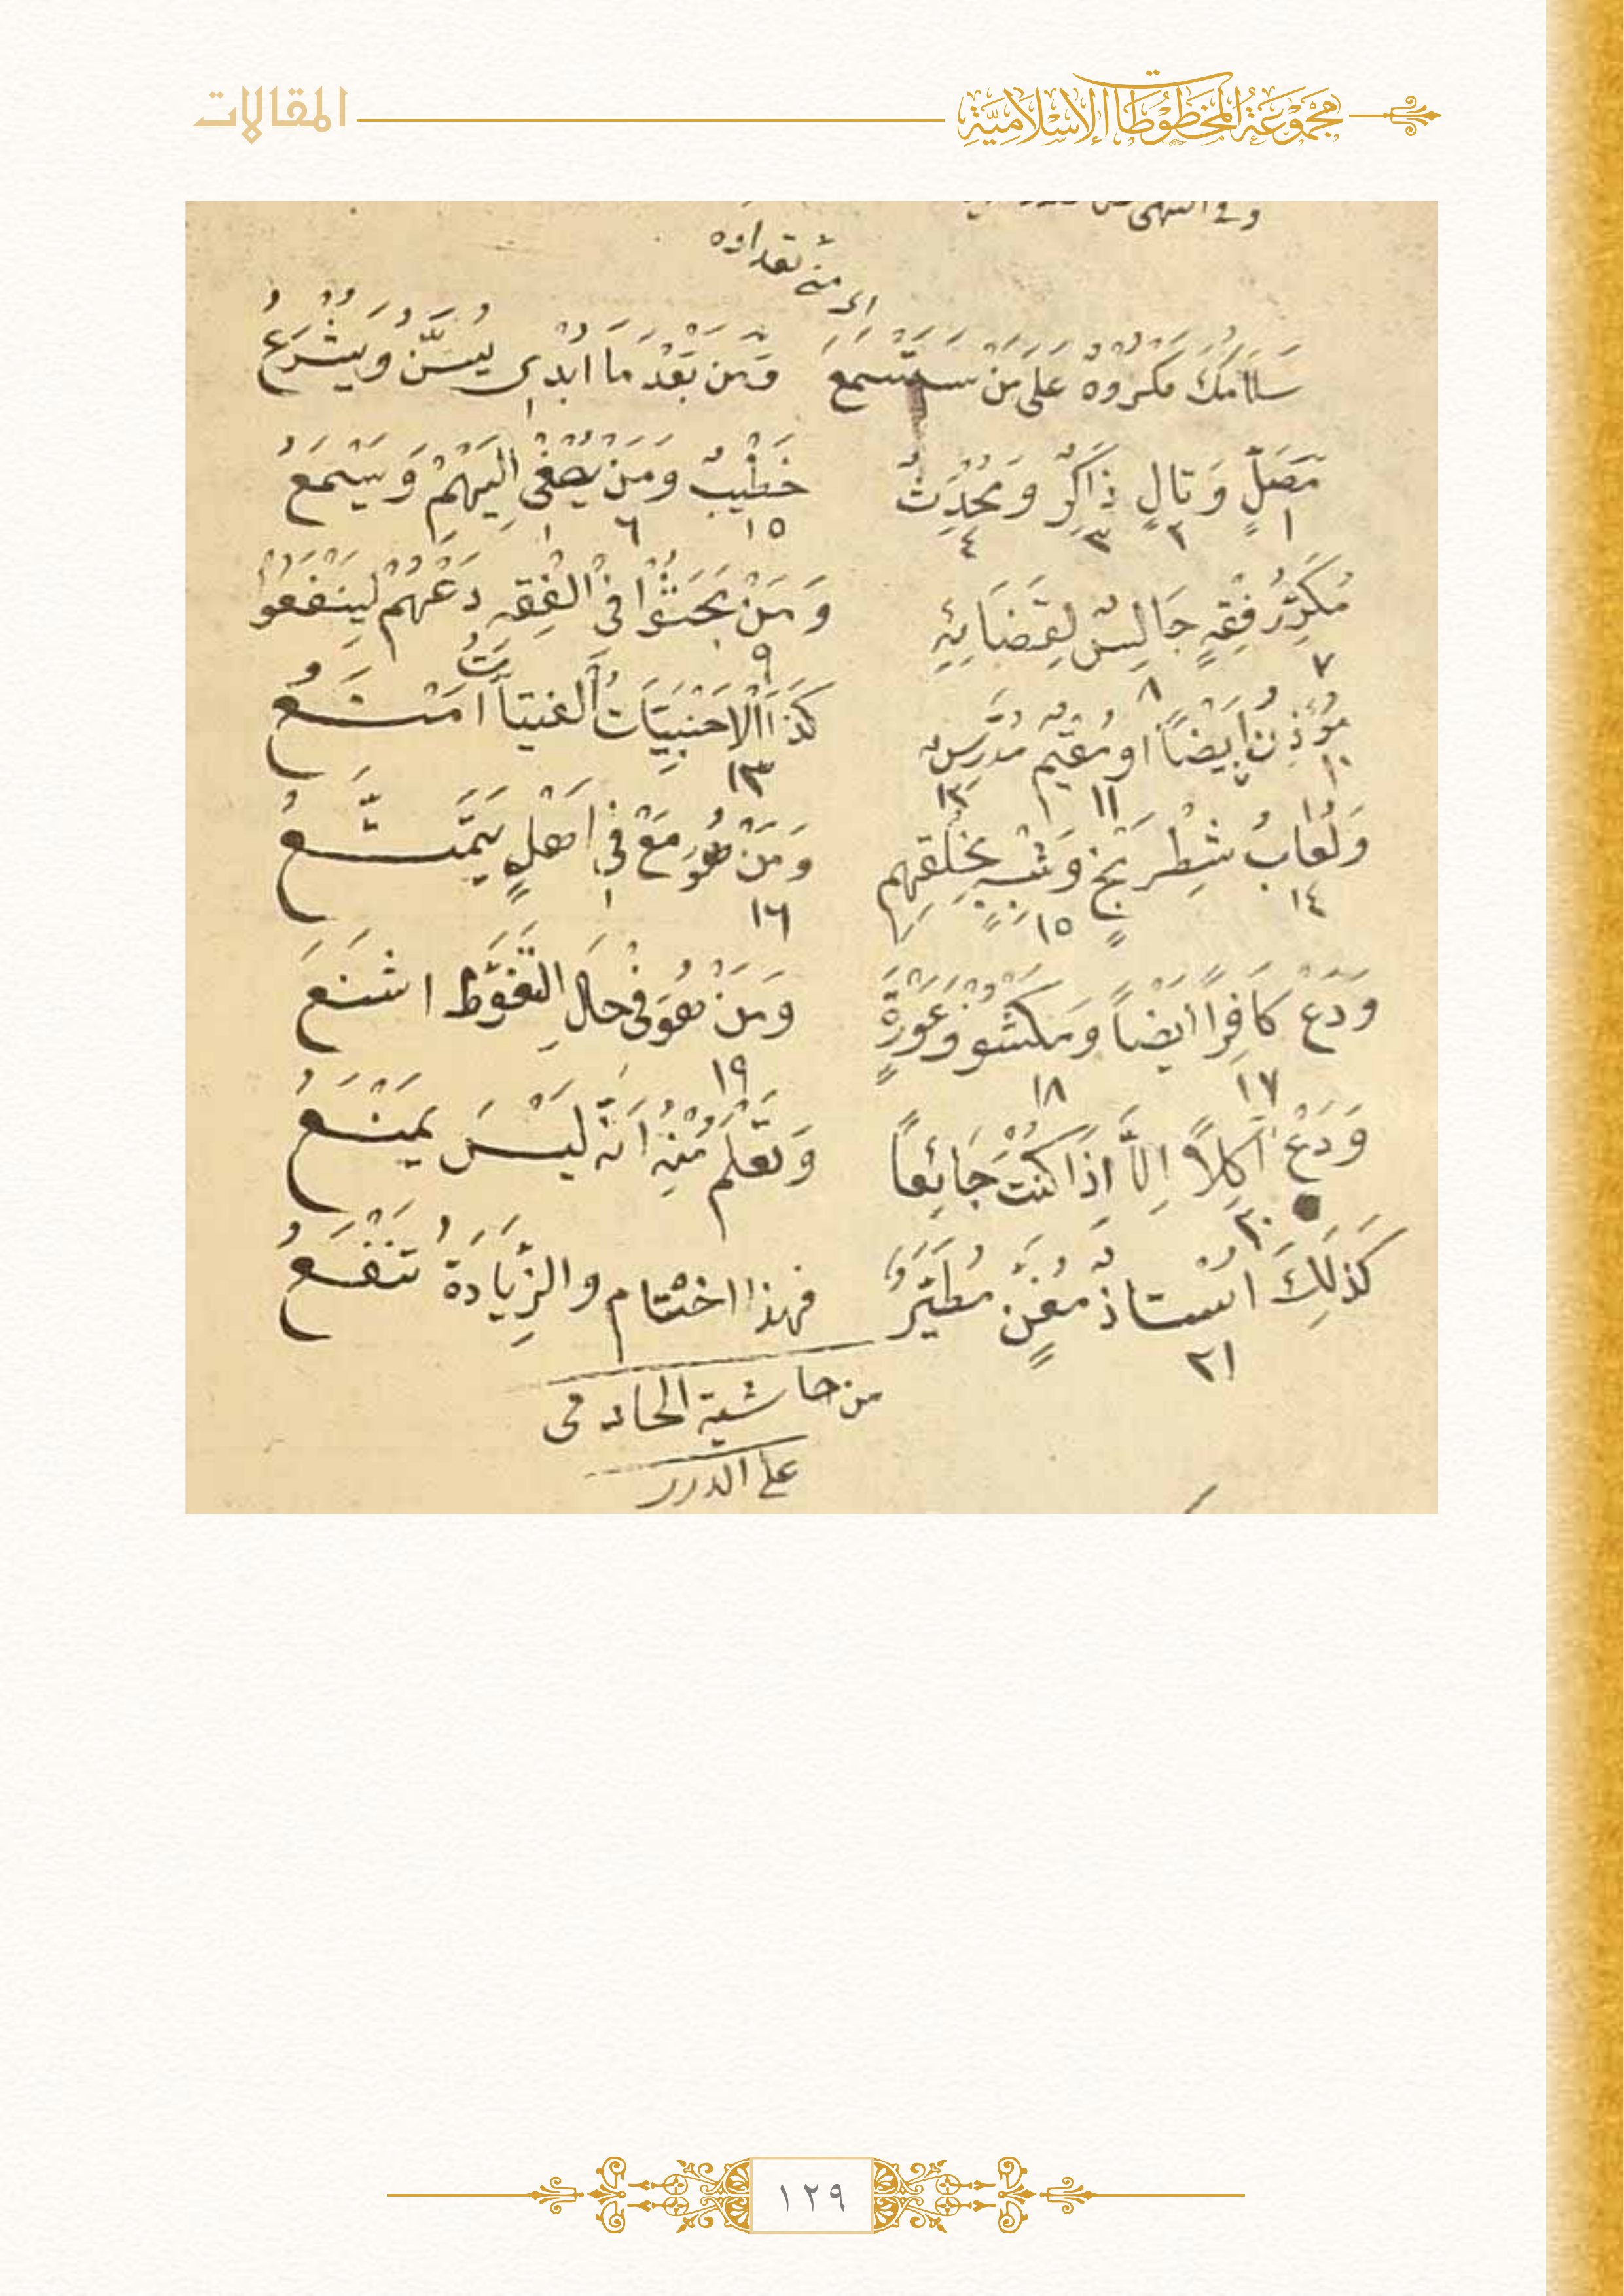 مَجْمُوعَةُ المَخْطُوطَاتِ الإِسْلَامِيَّةِ المقالات
سَلَامُكَ مَكْرُوهٌ عَلَى مَنْ سَتَسْمَعُ وَمَنْ بَعْدَ مَا اُبْدِى يُسَنُّ وَيُشْرَعُ
مُصَلٍّ وَتَالٍ ذَاكِرٍ وَمُحَدِّثٌ خَطِيْبٌ وَمَنْ يُصْغِى اِلَيْهِمْ وَيَسْمَعُ
١ ٢ ٣ ٤ ١٥ ٦ ١
مُكَرِّرُ فِقْهٍ جَالِسٌ لِقَضَائِهِ وَمَنْ بَحَثُوا فِي الْفِقْهِ دَعْهُمْ لِيَنْفَعُوا
٧ ٨ ٩
مُؤَذِّنٌ اَيْضًا اَو مُقِيْمٌ مُدَرِّسٌ كَذَا الْاَجْنَبِيَّاتُ الْفَتِيَّاتُ اَمْنَعُ
١٠ ١١ ١٢ ١٣
وَلُعَّابُ شَطْرَنْجٍ وَشِبْهٍ بِخُلْقِهِم وَمَنْ هُوَ مَعْ فِي اَهْلٍ يَتَمَتَّعُ
١٤ ١٥ ١٦ ١
وَدَعْ كَافِرًا اَيْضًا وَمَكْشُوْفُ عَوْرَةٍ وَمَنْ هُوَ فِي حَالِ التَّغَوُّطِ اَشْنَعُ
١٧ ١٨ ١٩
وَدَعْ آكِلًا اِلَّا اِذَا كُنْتَ جَائِعًا وَتَعْلَمُ مِنْهُ اَنَّهُ لَيْسَ يَمْنَعُ
٢٠
كَذٰلِكَ اُسْتَاذٌ مُغَنٍّ مُطَيِّرٌ فهذا اختتام والزِّيَادَةُ تَنْفَعُ
٢١
من حاشية الخادمى
على الدرر
١٢٩